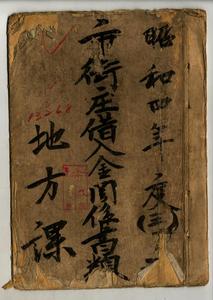 昭和四年度(三)
市街庄借入金関係書類
地方課